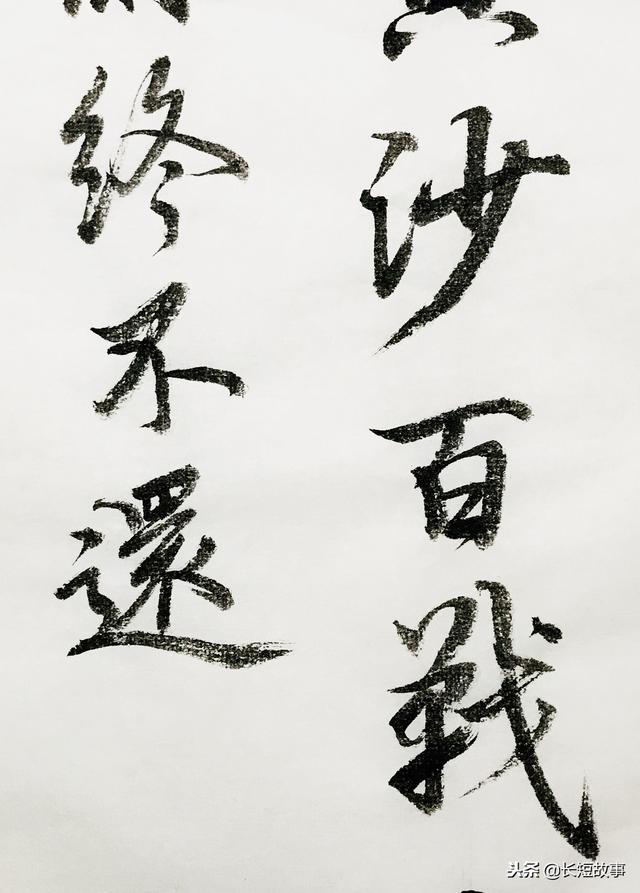 沙百戰
終不還
头条 @长短故事